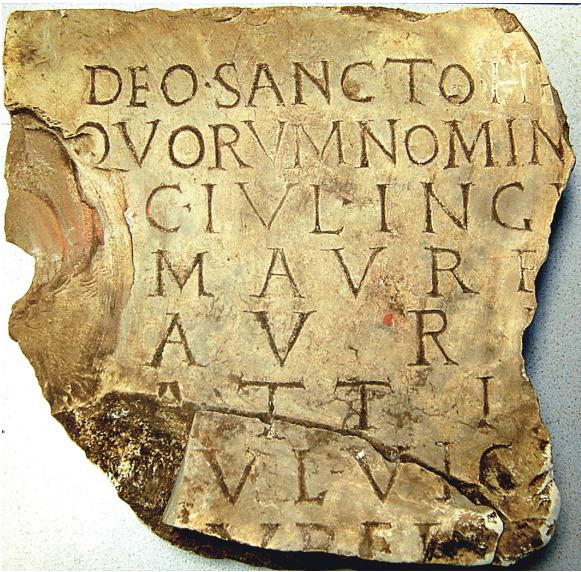 DEO·SANCTO H
QVORVM NOMIN
C·IVL·ING
M AVRE
A V R
A T T I
VL·VI
VREL